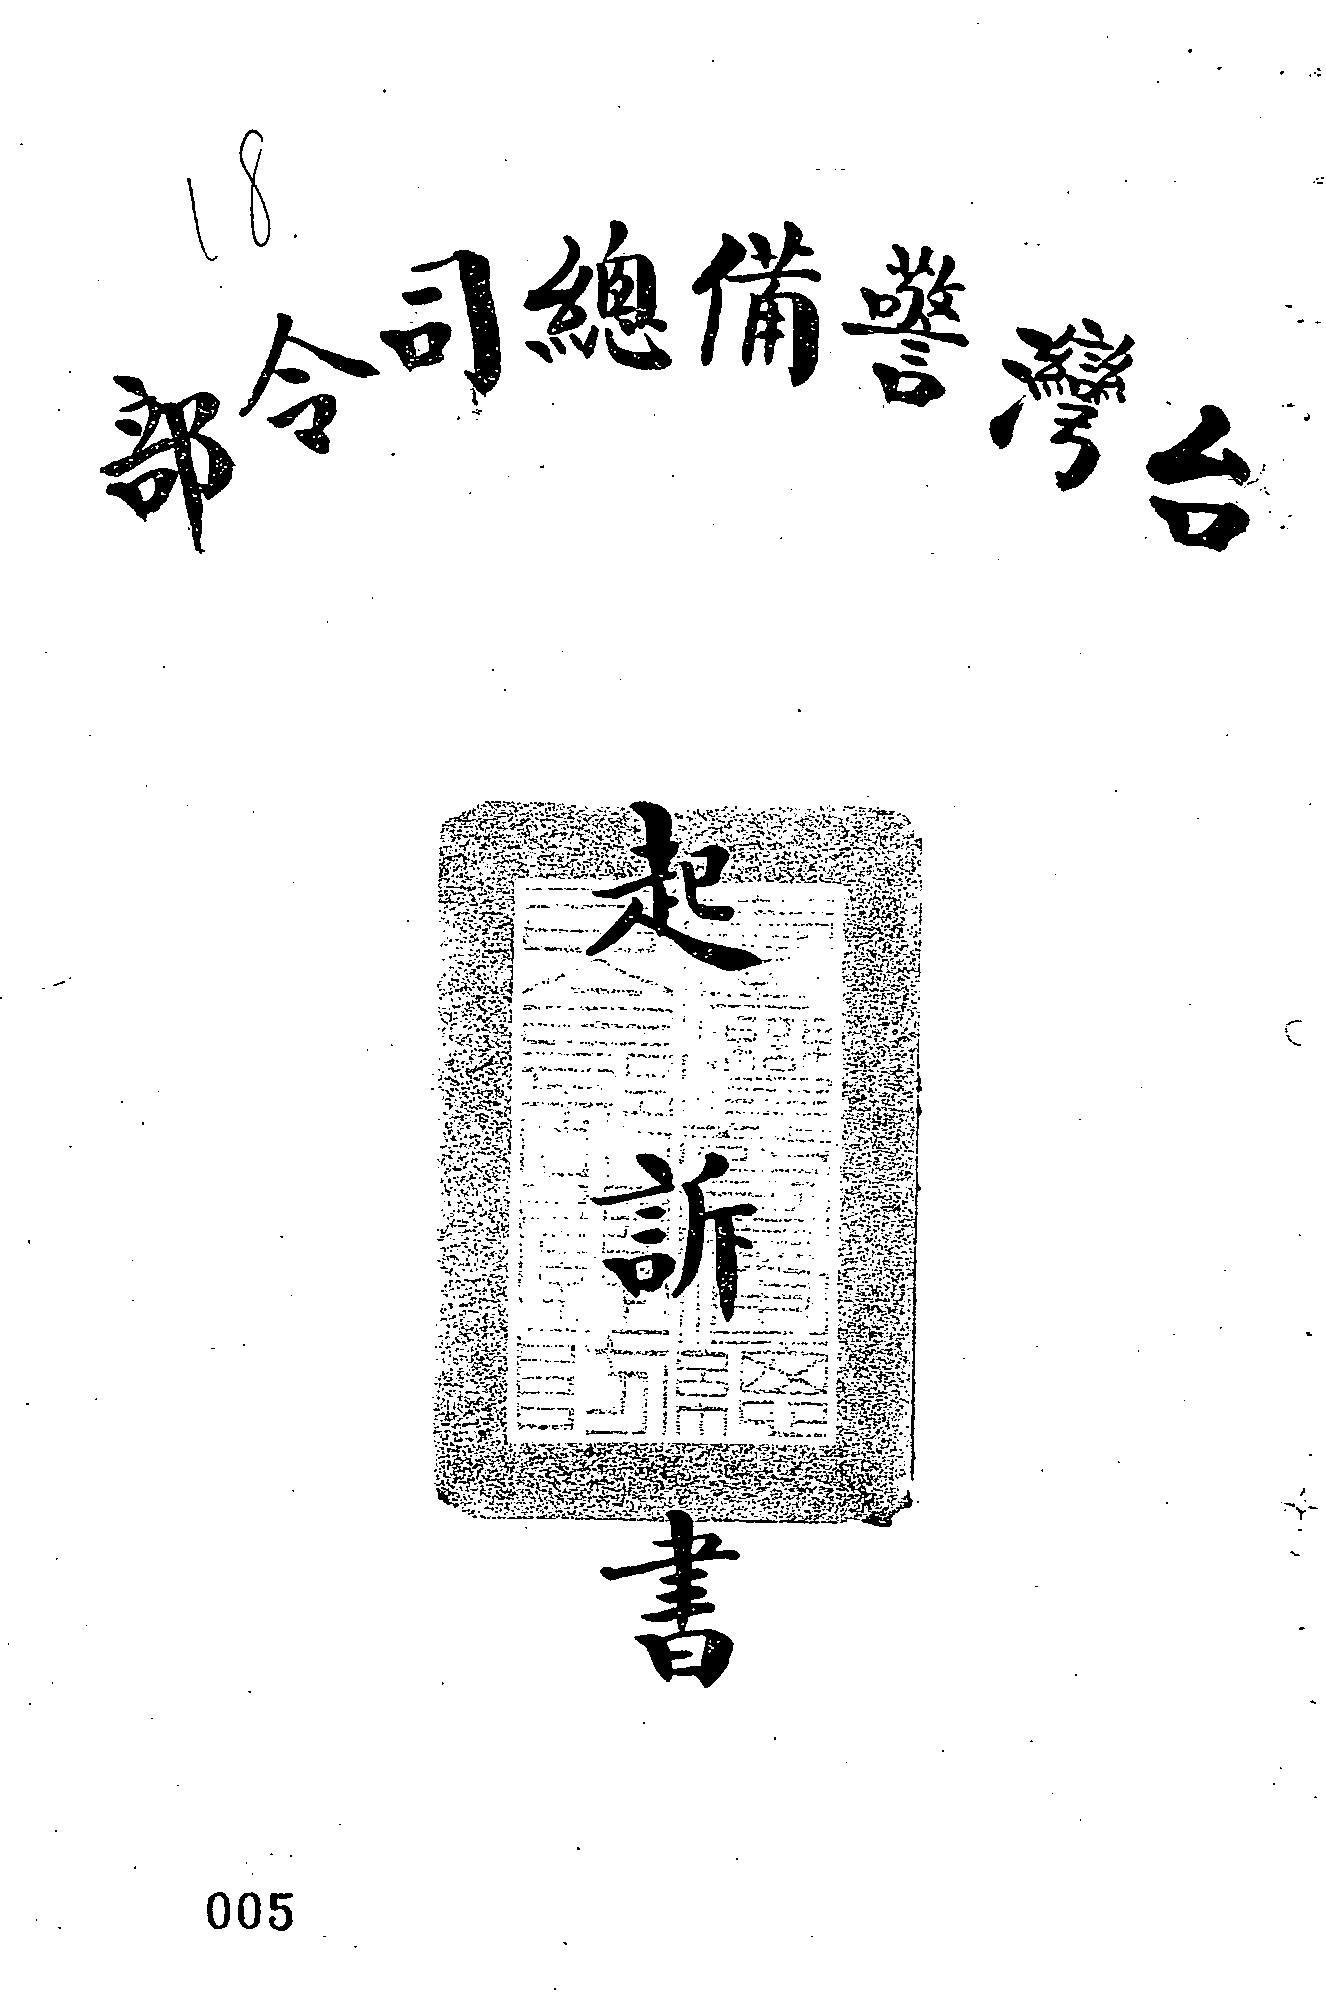 18
台灣警備總司令部
起訴書
005